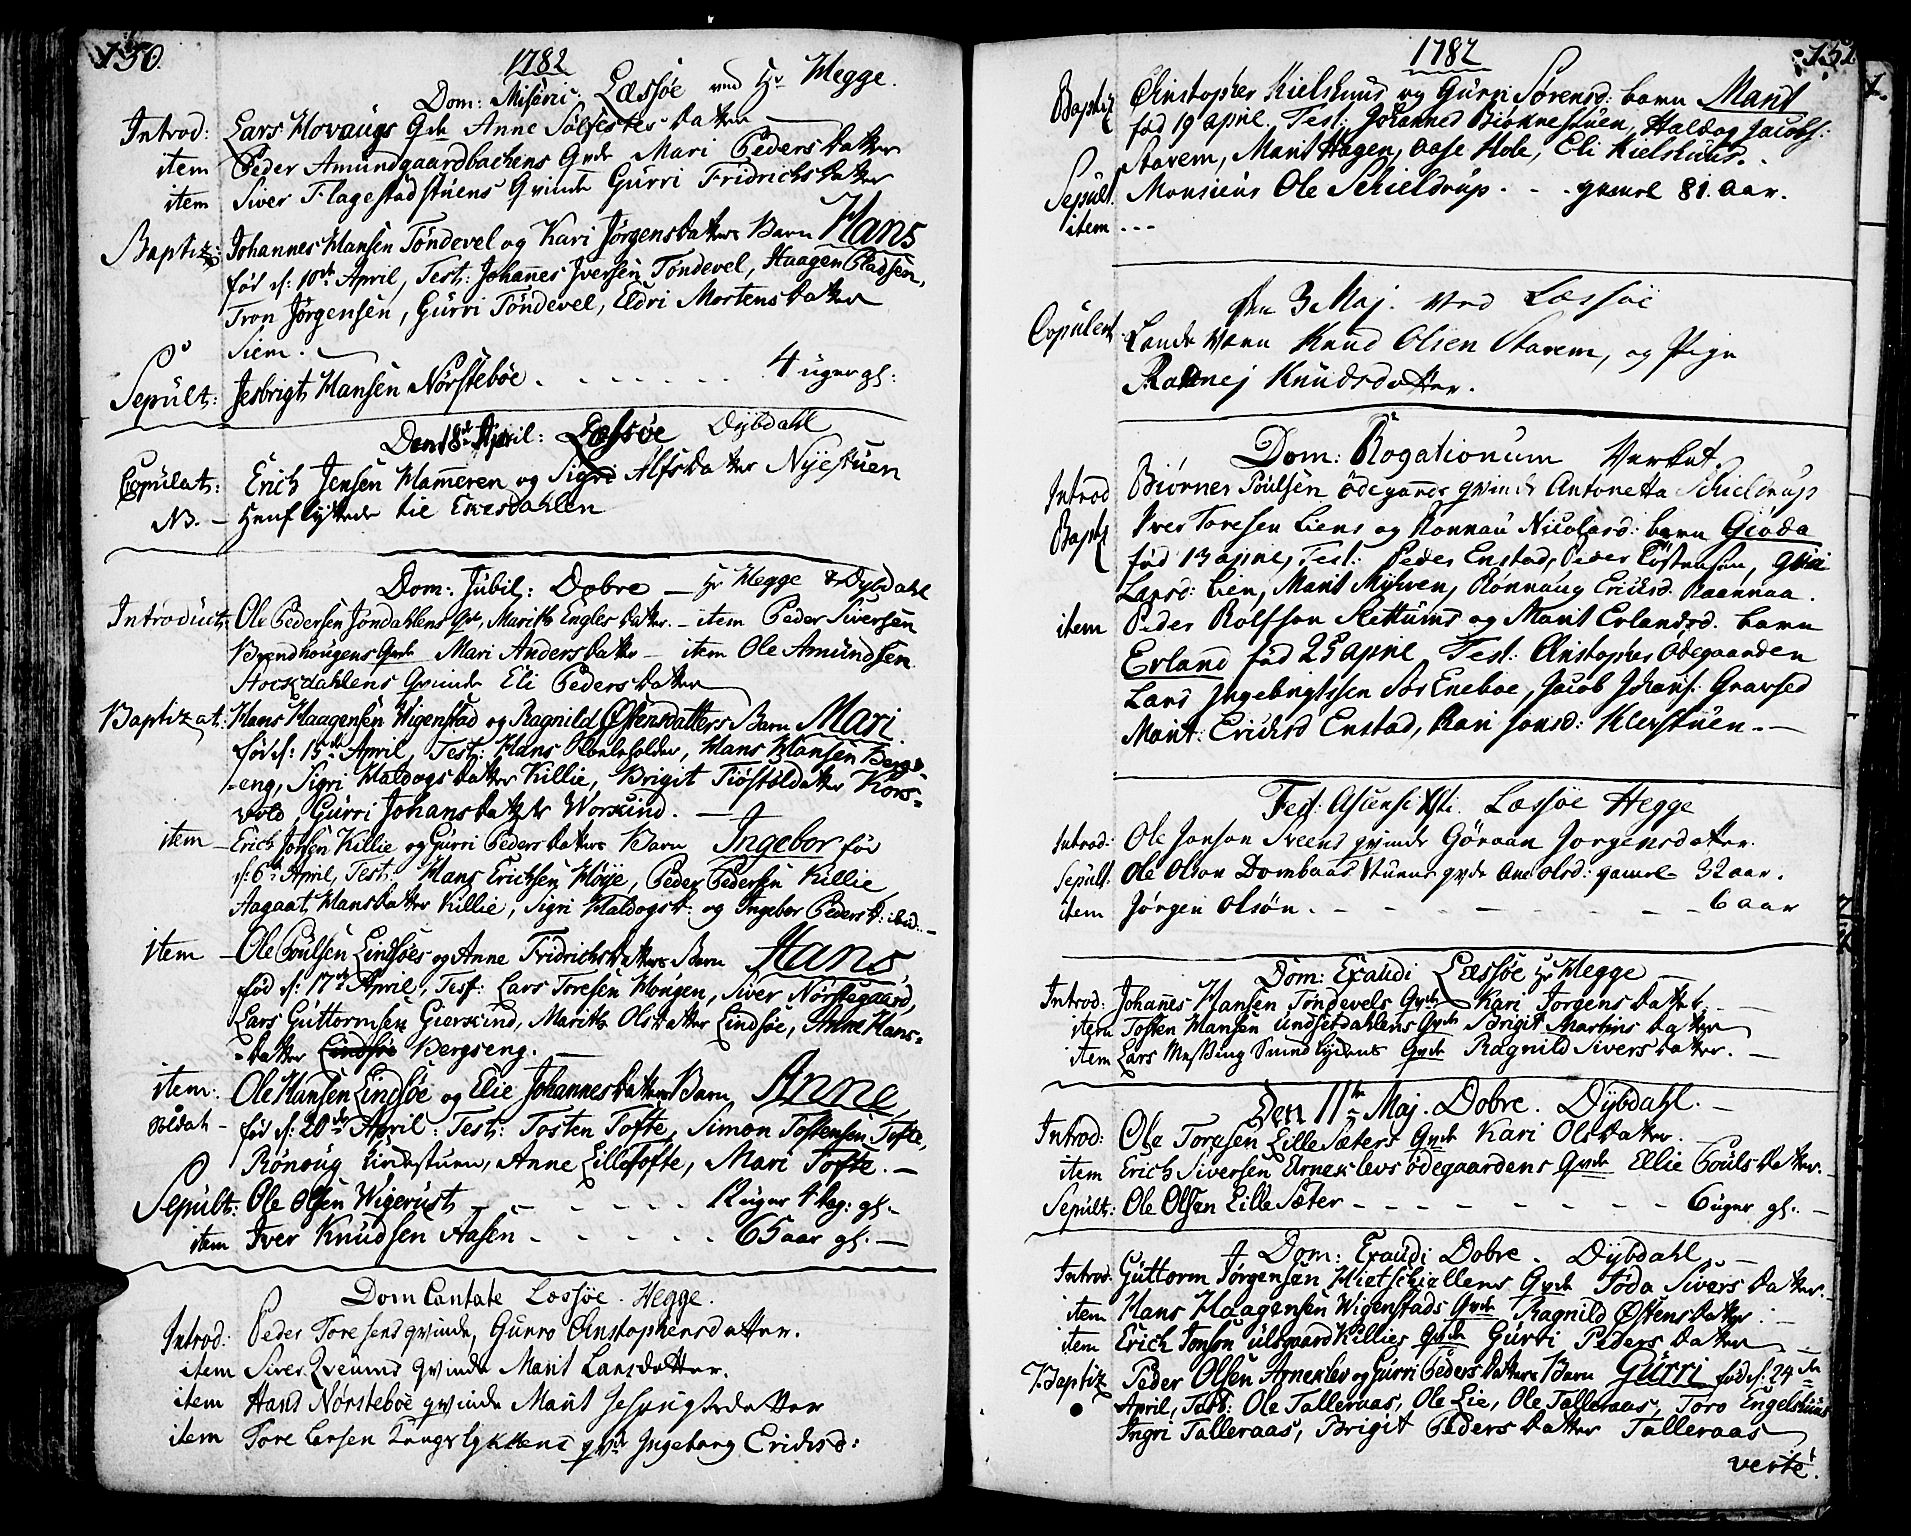 150.
1782
Dom: Miseric: Læssøe ved Hr Hegge.
Introd: Lars Hovaugs Qvde Anne Sølfestes datter
item Peder Amundgaardbachens Qvde Mari Peders datter
item Siver Flagestadstuens Qvinde Gurri Fridrichs datter
Baptiz: Johannes Hansen Töndevel og Kari Jørgens datters Barn Hans
fød d: 10de April, Test: Johannes Iversen Töndevel, Haagen Pladsen,
Tron Jørgensen, Gurri Töndevel, Eldri Mortens datter
Siem.
Sepult: Jesbrigt Hansen Nørsteböe. 4 uger gl:
Den 18de April: Læssøe Dybdahl
Copulat: Erich Jensen Hameren og Sigri Alfs datter Nyestuen
NB. - Henflyttede til
Dom: Jubil: Dobre - Hr Hegge & Dybdahl
Introduct: Ole Pedersen Jøndahlens Qve, Marith Engles datter. - item Peder Siversen
Brendhougens Qvde Mari Anders datter - item Ole Amundsen
Stockdahlens Qvinde Eli Peders datter
Baptizat: Hans Haagensen Wigenstad og Ragnild Østensdatters Barn Mari
fød d: 15de April, Test: Hans, Hans Hansen Bergs-
-eng, Sigri Haldogs datter Killie, Brigit Tiøstøldatter Kors-
vold, Gurri Johans datter Workind.
item - Erich Jonsen Killie og Gurri Peders datters Barn Ingebor fød
d: 6te April, Test: Hans Erichsen Höye, Peder Pedersen Killie,
Aagaat Hans datter Killie, Sigri Haldogs d: og Ingebor Peders d: ibid. -
item - Ole Poulsen Lindsöes og Anne Fridrichs datters Barn Hans,
fød d: 17de April, Test: Lars Toresen Hougen, Siver Nørstegaard,
Lars Guttormsen Gierkind, Marithe Ols datter Lindsöe, Anne Hans-
-datter Lindsöe Bergseng.
item: Ole Hansen Lindsöe og Elie Johannes datters Barn Anne,
Soldat - fød d: 20de April: Test: Tosten Tofte, Simon Tostensen Tofte,
Rönoug Lindestuen, Anne Lilletofte, Mari Tofte. -
Sepult: Ole Olsen Wigerust 12 uger 4 dag: gl. -
item Iver Knudsen Aasen 65 aar gl. -
Dom Cantate Læssøe. Hegge.
Introd: Peder Toresens qvinde, Gunro Christophersdatter.
item Siver qvinde Marit Larsdatter.
item Hans Nørsteböe qvinde Marit Jesprigtsdatter
item Tore Larsen qvde Ingeborg Ericksd:
1782
151
1.
Baptiz Christopher Kielshuus og Gurri Sörensd: barn Marit
fød 19 april. Test: Johannes Birknestuen, Haldog Jacobs:
Stavem, Marit Hagen, Aase Hole, Eli Kielshuus.
Sepult. Monsieur Ole Schieldrup. - - gamel 81. aar.
item - - -
den 3 Maj. ved Læssøe
Copuleret Lande værn Knud Olsen Stavem, og Pige
Ragnej Knudsdatter.
Dom: Rogationum Verket.
Introd Biörner Poulsen Ödegaards qvinde Antonetta Schieldrup
Bapt Iver Toresen Liens og Ronnau Nicolasd: barn Giöda
fød 13 april, Test: Peder Enstad, Peder Tostensen, Guri
Larsd: Lien, Marit Mylven, Rönnaug Ericksd. Raannaa.
item Peder Rolfson Slettums og Marit Erlandsd. barn
Erland fød 25 april Test: Christopher Ödegaarden
Lars Ingebrigtsen Sör Eneboe, Jacob Johans: Gravsed
Marit Ericksd Enstad, Kari Jonsd: Klevstuen. -
Fest: Ascensi Xsti. Læssøe Hegge
Introd: Ole Jonson Sveens qvinde Göraan Jorgensdatter.
Sepult. Ole Olson Dombaas Stuens qvde Ane Olsd: gamel 32 aar.
item Jörgen Olsön. 6 aar
Dom: Exaudi Læssøe Hr Hegge
Introd: Johannes Hansen Töndevels Qvde Kari Jorgens datter. -
item Tosten Hansen Undsetdahlens Qvde Brigit Martins datter
item Lars Messing Sundlydens Qvde Ragnild Sivers datter. -
Den 11te Maj. Dobre. Dybdahl. -
Introd: Ole Toresen Lille Sæters Qvde Kari Ols datter. -
item Erich Siversen Arneklevs ödegaardens Qvde Ellie Pouls datter.
Sepult: Ole Olsen Lille Sæter 6 uger gl. -
Dom: Exaudi Dobre. Dybdahl -
Introd. Guttorm Jørgensen Hietschiellens Qvde Jöda Sivers datter. -
item Hans Haagensen Wigenstads Qvde Ragnild Østens datter. -
item Erich Jonson Ulsgaard Killies Qvde Gurri Peders datter -
Baptiz Peder Olsen Arneklev og Gurri Peders datters Barn Gurri fød d: 24de
April, Test: Ole Talleraas, Ole Lie, Ole Talleraas, Toro Engelshuus
Ingri Talleraas, Brigit Peders datter Talleraas
verte!